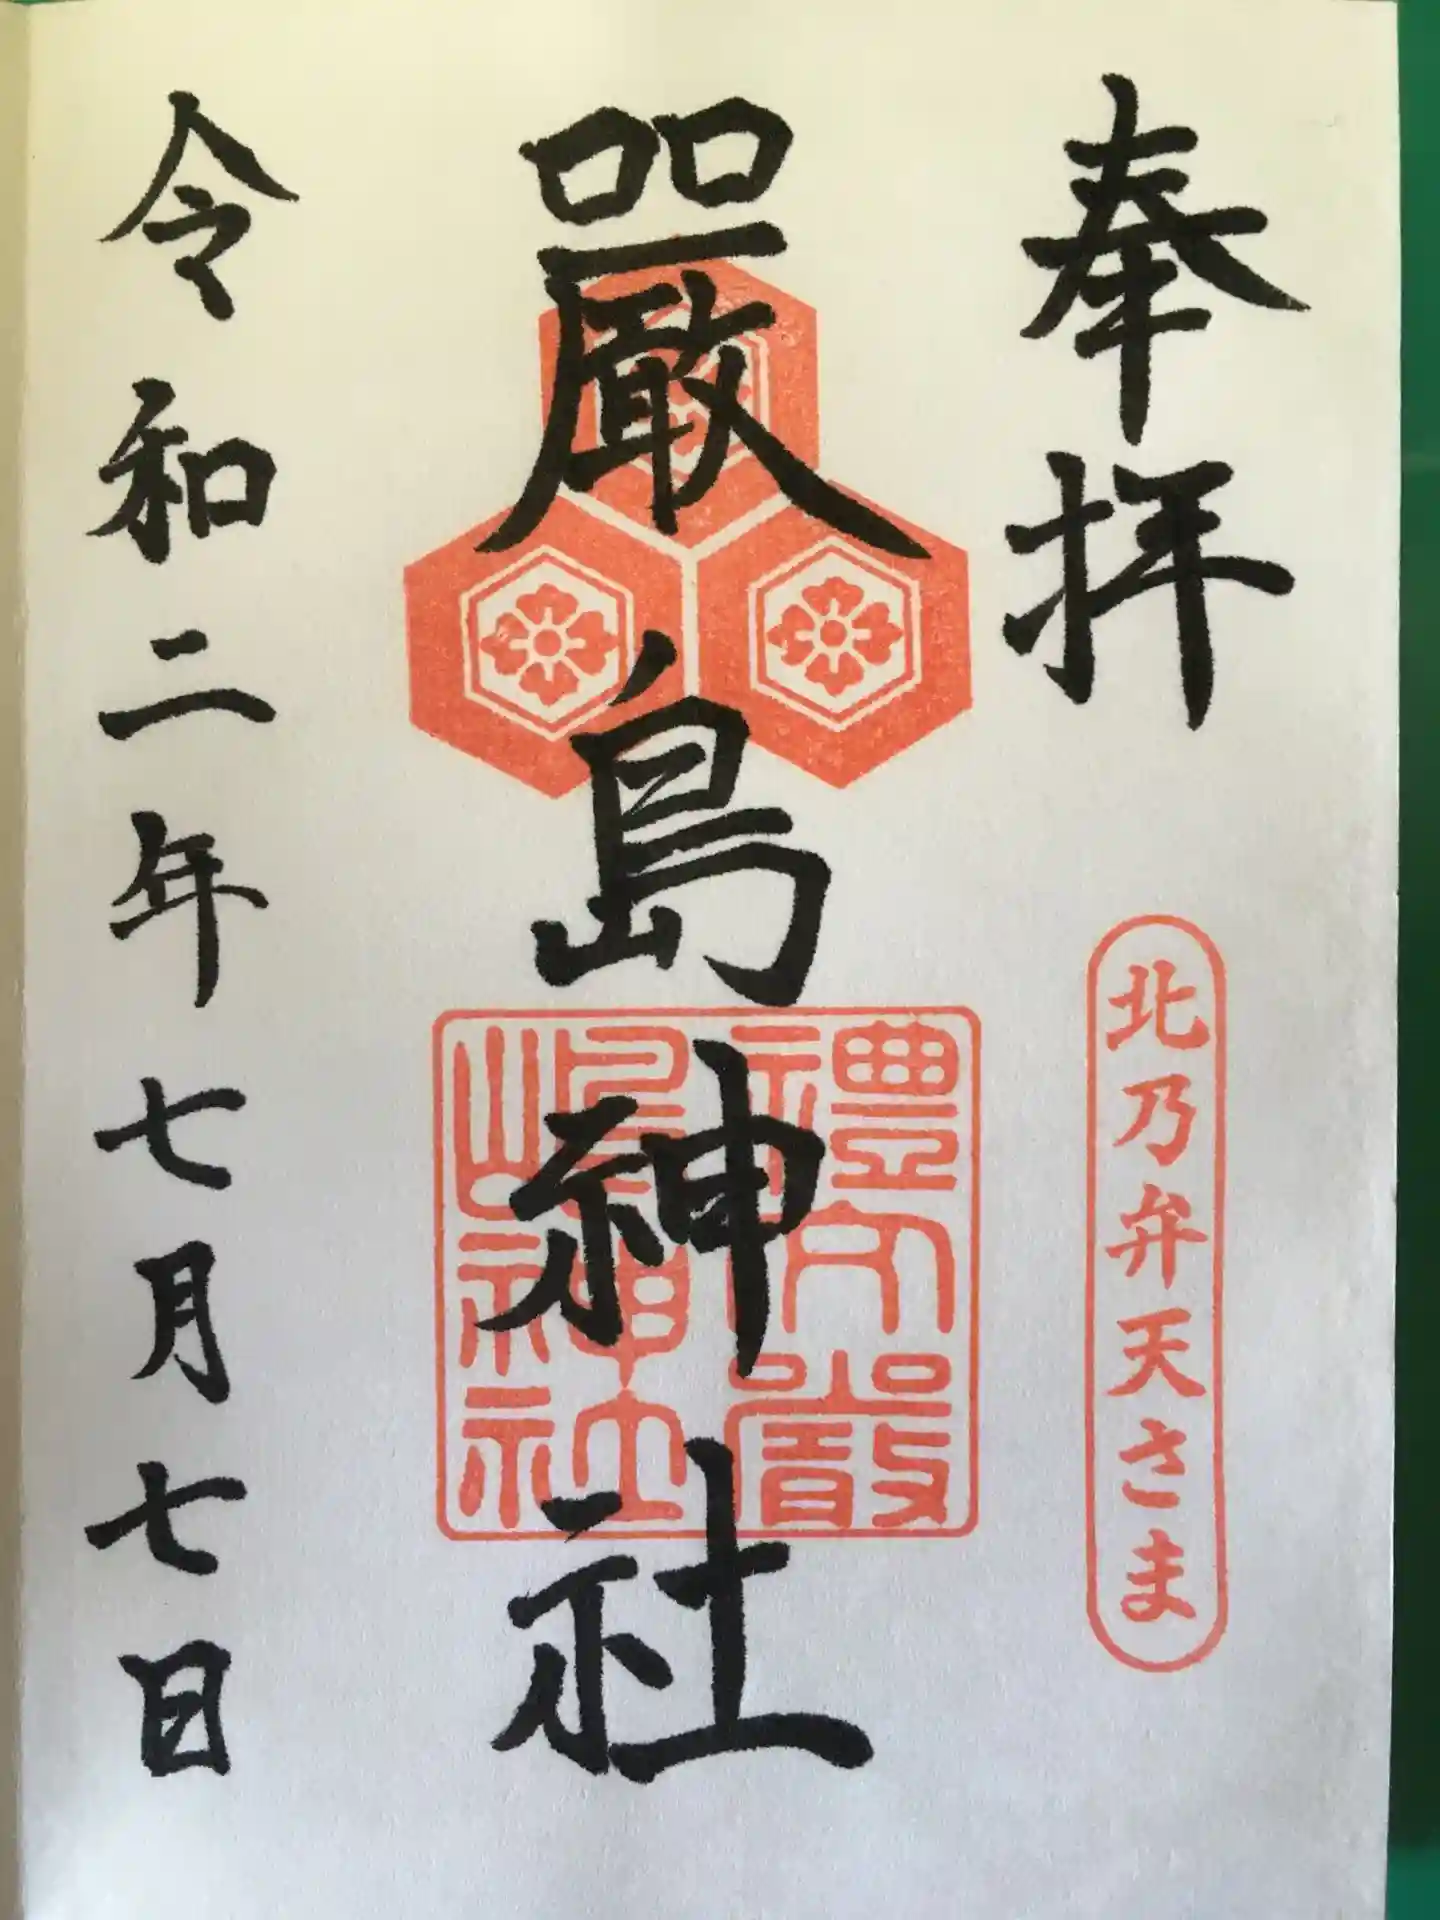 奉拝
北乃弁天さま
嚴島神社
禮文嚴
嶋神社
令和二年七月七日